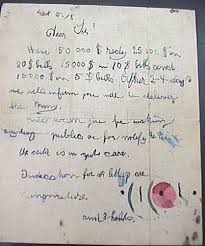 Dear Sir!
Have 50.000 $ redy 25 000 $ in
20 $ bills 15000 $ in 10 $ bills and
10000 $ in 5 $ bills After 2-4 days
we will inform you were to deliver
the mony
We warn you for making
anyding public or for notify the
is in care.
Indication for all letters are
singnature
and 3 holds.